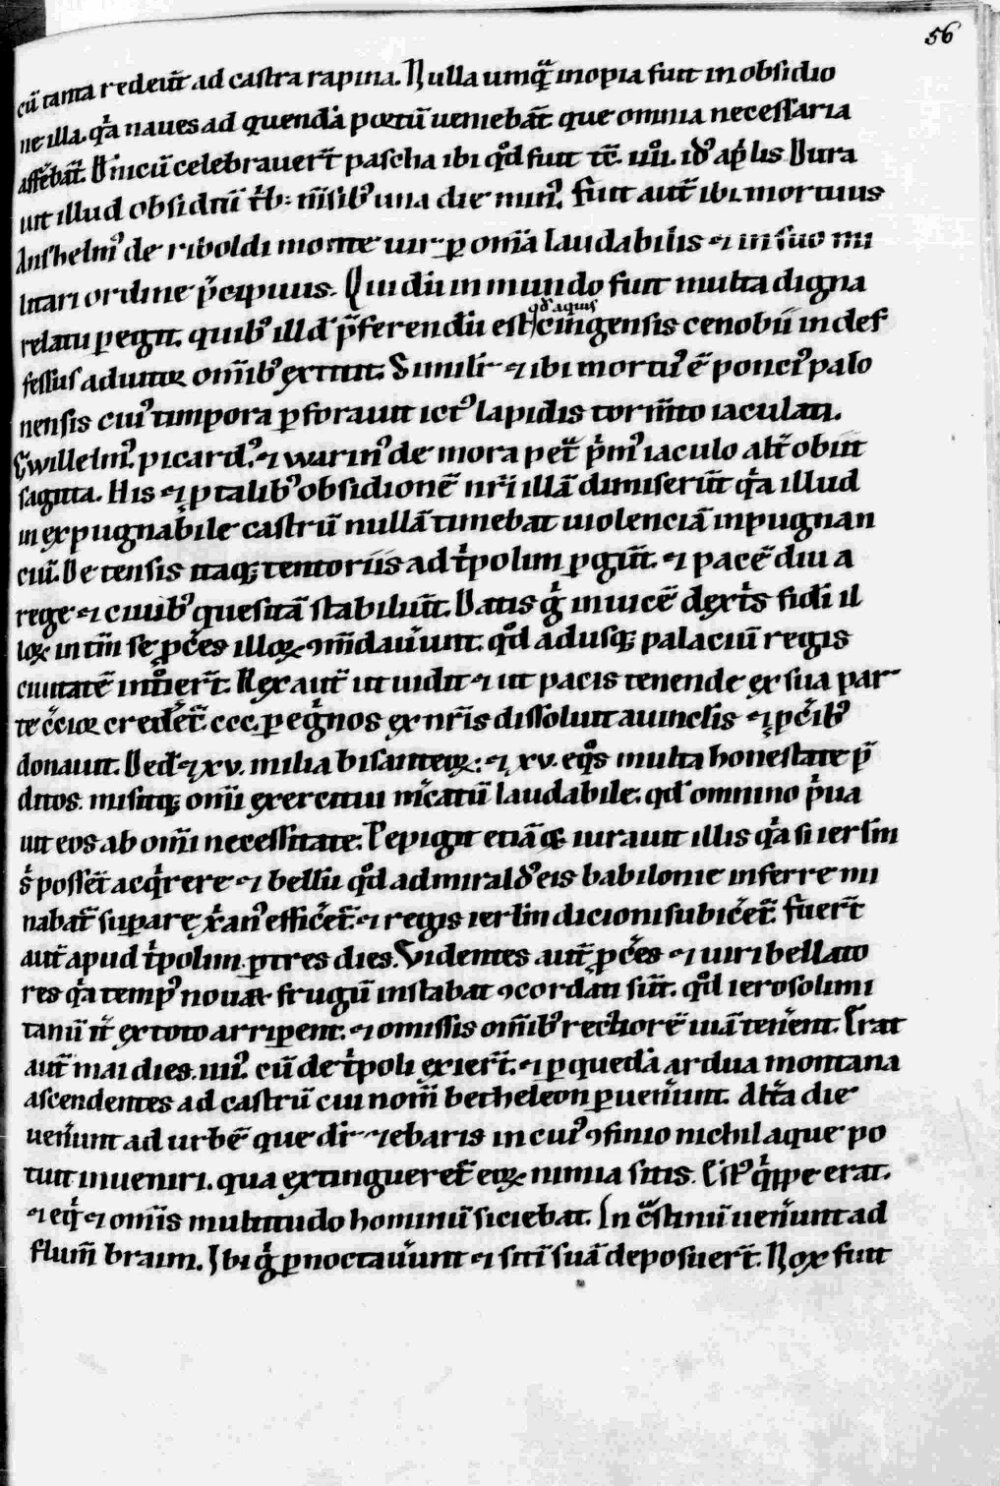 56
cū tanta redeūt ad castra rapina. Nulla umq̄ inopia fuit in obsidio
ne illa. qa naues ad quendā portū ueniebāt que omnia necessaria
afferebāt. Dn̄icū celebrauerūt pascha ibi qd fuit tc̄. iiii. id' aplis. Dura
uit illud obsidiū trib; mīsib; una die min'. Fuit aut̄ ibi mortuus
Anshelm' de riboldi monte uir p om̄ia laudabilis ⁊ in suo mi
litari ordine p̄cipuus. Qui dū in mundo fuit multa digna
relatu pegit. quib; illd' p̄ferendū est qd' aquis cingensis cenobii indef
fessus adiutor om̄ib; extitit. Simili ⁊ ibi mortu' ē poncī' palo
nensis cui' timpora pforauit ict' lapidis torm̄to iaculati.
Gwillelm'. picard'. ⁊ warin' de mora pet̄ p̄m' iaculo alt̄ obiit
sagitta. His ⁊ p talib; obsidionē nr̄i illā dimiserūt qa illud
inexpugnabile castrū nullā timebat uiolenciā inpugnan
ciū. Detensis itaq; tentoriis ad tipolim pgūt. ⁊ pacē diu a
rege ⁊ ciuib; quesitā stabiliūt. Datis g inuicē dextis fidi il
loꝝ in tm̄ se pces illoꝝ ꝯm̄dauerunt. qd adusq; palaciū regis
ciuitatē introierūt. Rex aut̄ ut uidit ⁊ ut pacis tenende ex sua par
te ccior credet̄. ccc. pegnos ex nr̄is dissoluit a uinclis ⁊ pcib;
donauit. Ded' ⁊ xv. milia bisanteoꝝ: ⁊ xv. eqos multa honestate p̄
ditos. misitq; omi exercitui mcatū laudabile. qd' omnino p̄ua
uit eos ab om̄i necessitate. Pepigit etiā q; iurauit illis qa si ierl'm
s possēt acqrere ⁊ bellū qd admirald' eis babilonie inferre mi
nabat̄ supare, xan' efficet̄. ⁊ regis ierl'm dicioni subicet̄. Fuert̄
aut̄ apud tipolim p tres dies. Videntes aut̄ pces ⁊ uiri bellato
res qa temp' nouaꝝ frugū instabat ꝯcordati sūt. qd ierosolimi
tanū it̄ ex toto arripent. ⁊ omissis om̄ib; rectiorē uiā tenent. Erat
aut̄ mai dies. iiii'. cū de tipoli exiert̄. ⁊ p quedā ardua montana
ascendentes ad castrū cui nom̄ betheleon peruenunt. Altā die
uenunt ad urbē que dr̄ zebaris in cui' ꝯfinio nichil aque po
tuit inueniri. qua extingueret̄ eoꝝ nimia sitis. Est' qppe erat.
⁊ eq ⁊ omīs multitudo hominū siciebat. In cstinū uenunt ad
flum̄ braim. Ibi g pnoctauunt ⁊ sitī suā deposuert̄. Nox fuit